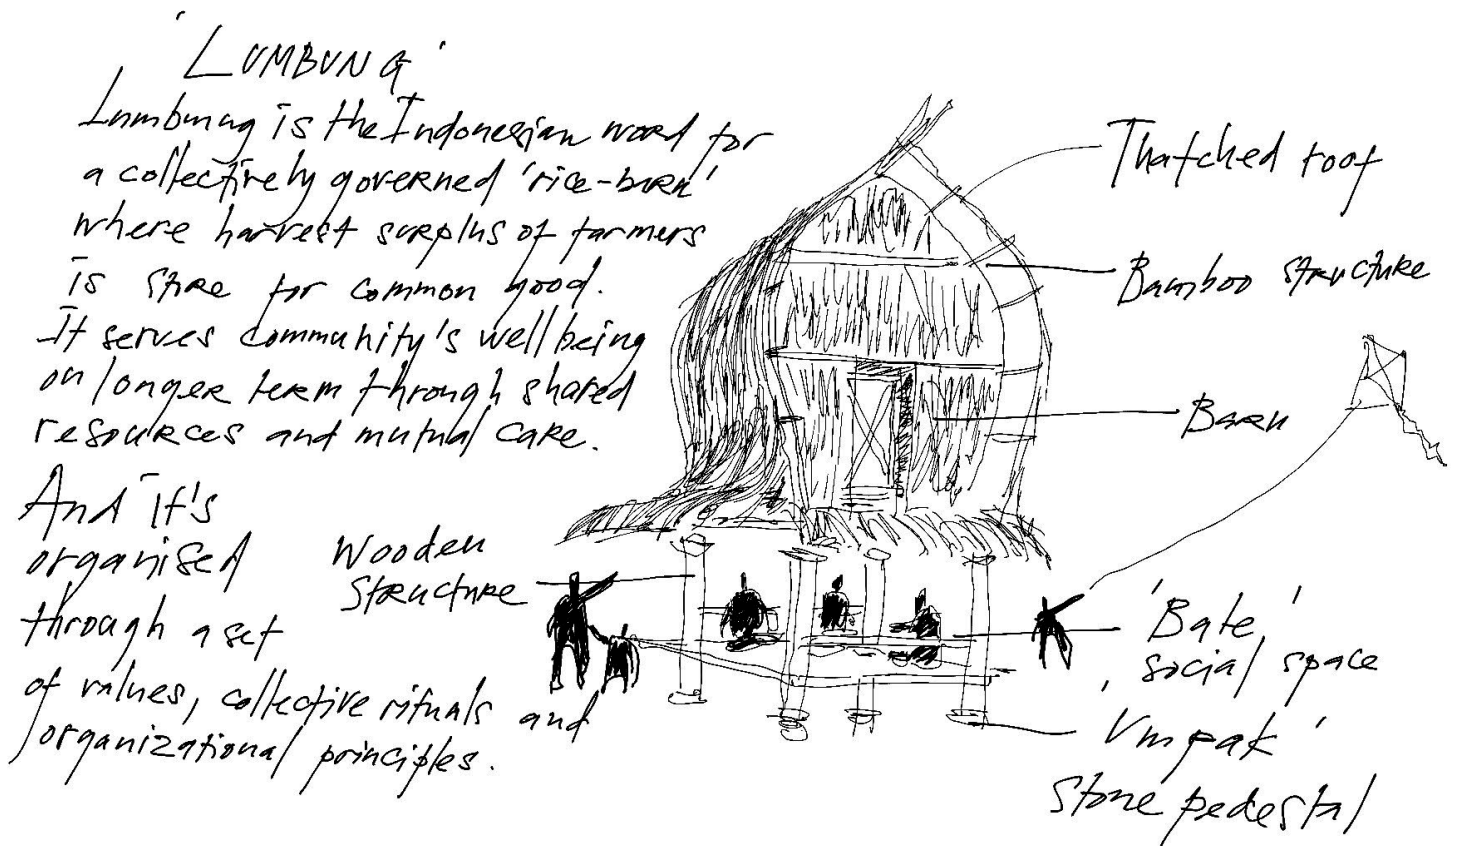 'LUMBUNG'
Lumbung is the Indonesian word for
a collectively governed 'rice-barn'
where harvest surplus of farmers
is store for common good.
It serves community's wellbeing
on longer term through shared
resources and mutual care.
And it's
organised
through a set
of values, collective rituals and
organizational principles.
Thatched roof
Bamboo structure
Barn
Wooden
structure
'Bale'
social space
'Umpak'
stone pedestal